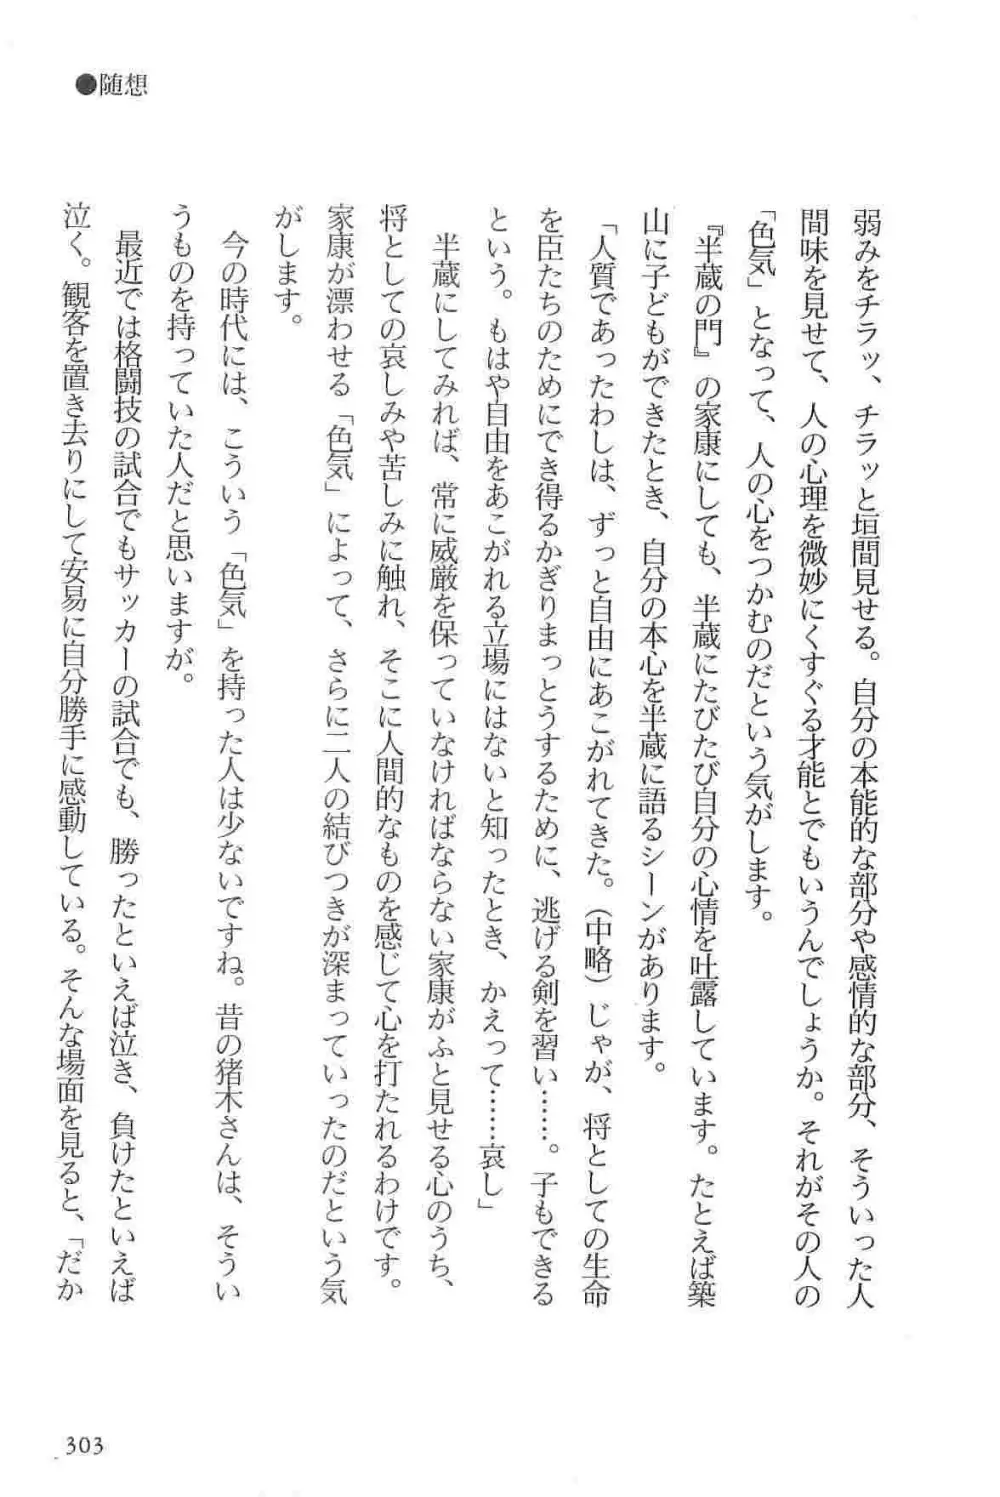 ●随想
弱みをチラッ、チラッと垣間見せる。自分の本能的な部分や感情的な部分、そういった人
間味を見せて、人の心理を微妙にくすぐる才能とでもいうんでしょうか。それがその人の
「色気」となって、人の心をつかむのだという気がします。
『半蔵の門』の家康にしても、半蔵にたびたび自分の心情を吐露しています。たとえば築
山に子どもができたとき、自分の本心を半蔵に語るシーンがあります。
「人質であったわしは、ずっと自由にあこがれてきた。（中略）じゃが、将としての生命
を臣たちのためにでき得るかぎりまっとうするために、逃げる剣を習い……。子もできる
という。もはや自由をあこがれる立場にはないと知ったとき、かえって………哀し」
半蔵にしてみれば、常に威厳を保っていなければならない家康がふと見せる心のうち、
将としての哀しみや苦しみに触れ、そこに人間的なものを感じて心を打たれるわけです。
家康が漂わせる「色気」によって、さらに二人の結びつきが深まっていったのだという気
がします。
今の時代には、こういう「色気」を持った人は少ないですね。昔の猪木さんは、そうい
うものを持っていた人だと思いますが。
最近では格闘技の試合でもサッカーの試合でも、勝ったといえば泣き、負けたといえば
泣く。観客を置き去りにして安易に自分勝手に感動している。そんな場面を見ると、「だか
303